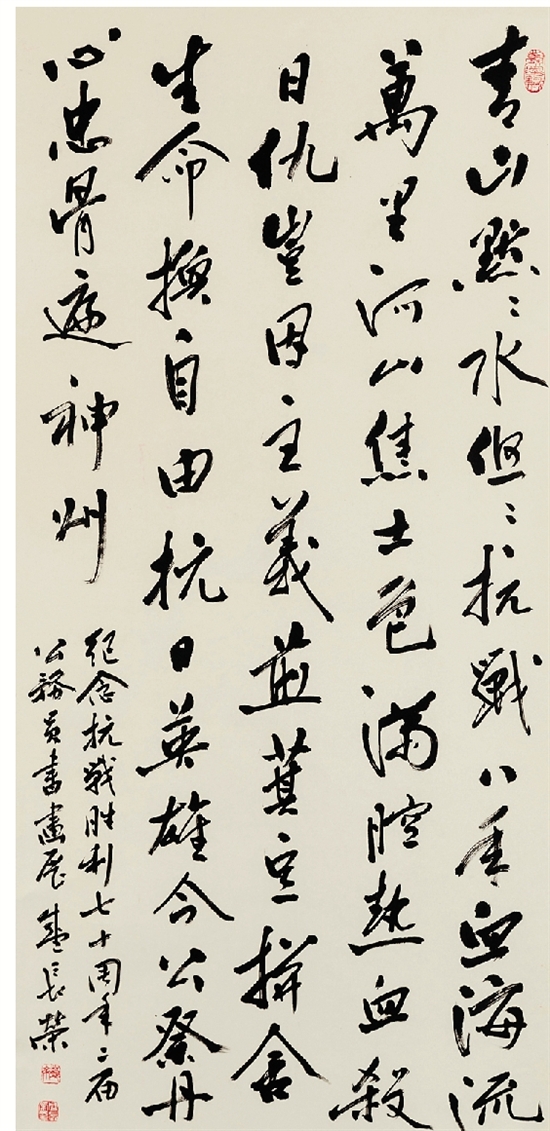 青山黙〻水悠〻抗戰八年血海流
萬里河山焦土色滿腔熱血殺
日仇豈因主義煎萁豆拚舍
生命換自由抗日英雄今公祭丹
心忠骨遍神州
紀念抗戰胜利七十周年二届
公務員書畫展盛長榮